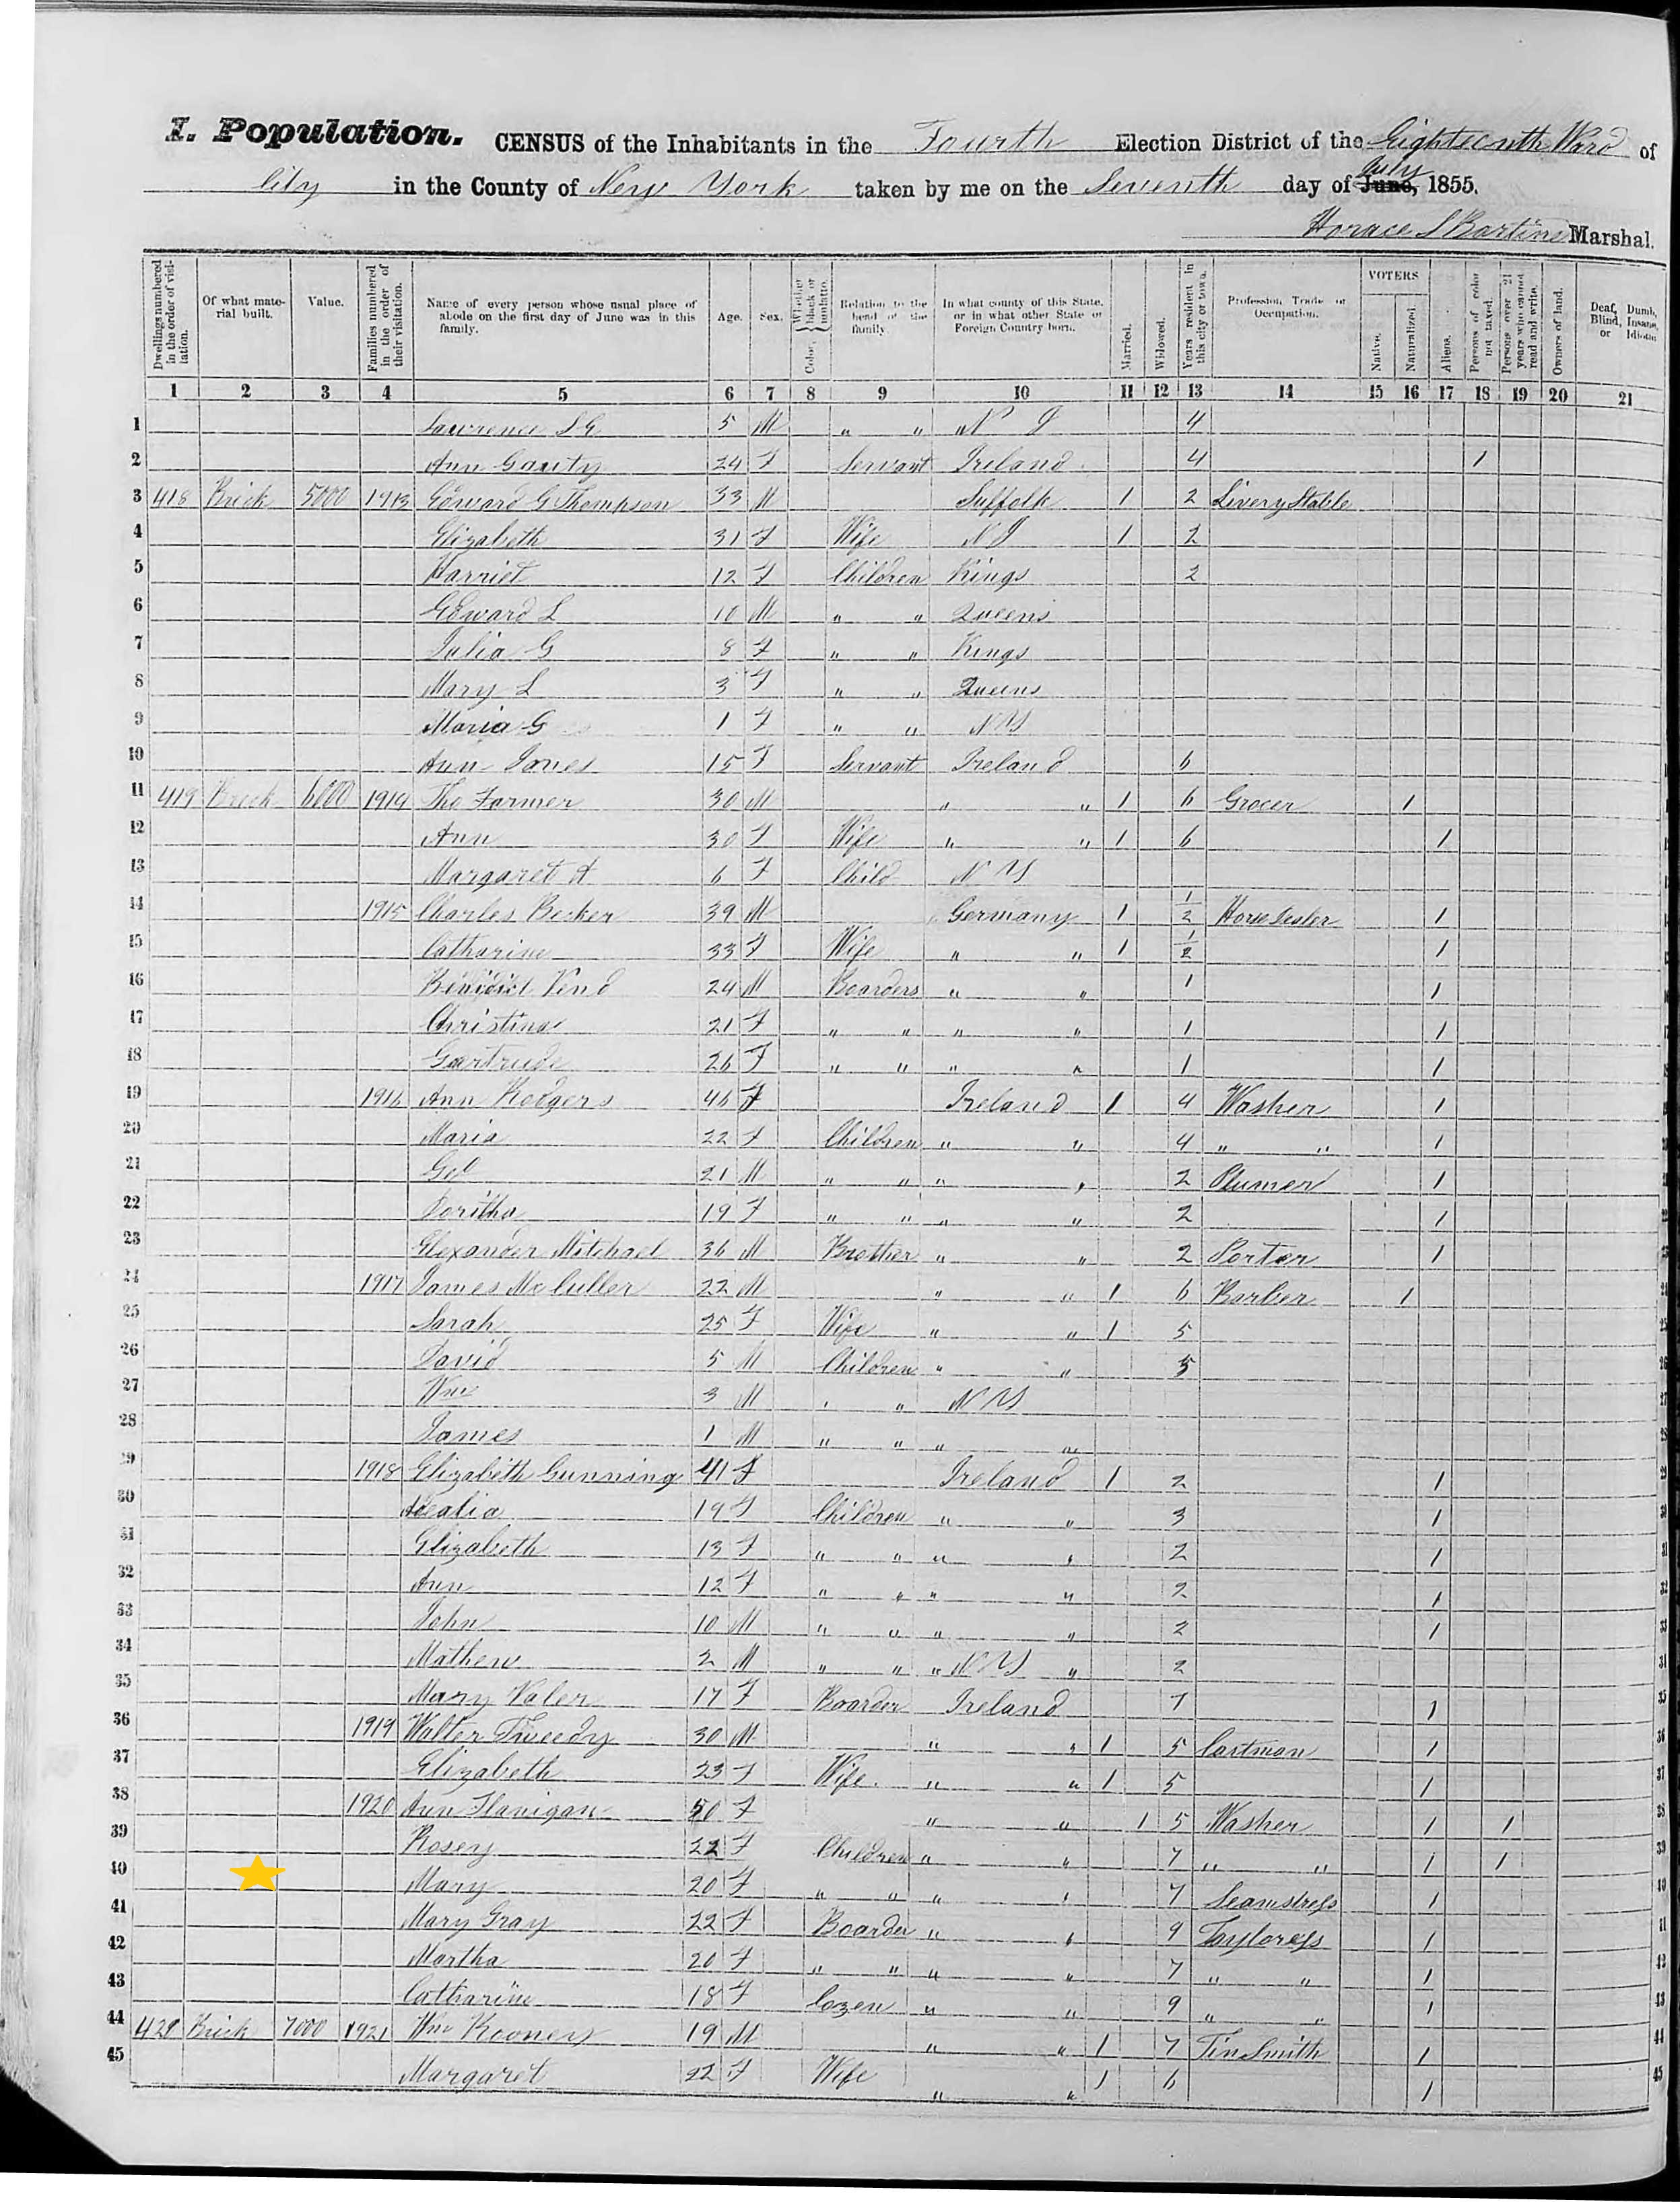 I. Population. CENSUS of the Inhabitants in the Fourth Election District of the Eighteenth Ward of
City in the County of New York taken by me on the Seventh day of June, July 1855.
Horace S Bartine Marshal.
Dwellings numbered in the order of visitation. Of what material built. Value. Families numbered in the order of their visitation. Name of every person whose usual place of abode on the first day of June was in this family. Age. Sex. Color, Whether black or mulatto. Relation to the head of the family. In what county of this State, or in what other State or Foreign Country born. Married. Widowed. Years resident in this city or town. Profession, Trade or Occupation. VOTERS Native. Naturalized. Aliens. Persons of color not taxed. Persons over 21 years who cannot read and write. Owners of land. Deaf, Dumb, Blind, Insane, or Idiotic
1 2 3 4 5 6 7 8 9 10 11 12 13 14 15 16 17 18 19 20 21
1 Lawrence S G 5 M " " " N J 4
2 Ann Garity 24 F Servant Ireland 4 1
3 418 Brick 5000 1913 Edward G Thompson 33 M Suffolk 1 2 Livery Stable
4 Elizabeth 31 F Wife N J 1 2
5 Harriet 12 F Children Kings 2
6 Edward L 10 M " " Queens
7 Julia G 8 F " " Kings
8 Mary L 3 F " " Queens
9 Maria G 1 F " " N Y
10 Ann Jones 15 F Servant Ireland 6
11 419 Brick 6000 1914 Tho Farmer 30 M " " 1 6 Grocer 1
12 Ann 30 F Wife " " 1 6 1
13 Margaret A 6 F Child N Y
14 1915 Charles Becker 39 M Germany 1 1/2 Horse 1
15 Catharine 33 F Wife " " 1 1/2 1
16 Benidict 24 M Boarders " " 1 1
17 Christina 21 F " " " " 1 1
18 Gertrude 26 F " " " " 1 1
19 1916 Ann Rodgers 46 F Ireland 1 4 Washer 1
20 Maria 22 F Children " " 4 " " 1
21 Geo 21 M " " " " 2 Plumer 1
22 Doritha 19 F " " " " 2 1
23 Elexander Mitchael 36 M Brother " " 2 Porter 1
24 1917 James McCuller 22 M " " 1 6 Barber 1
25 Sarah 25 F Wife " " 1 5
26 David 5 M Children " " 5
27 Wm 3 M " " N Y
28 James 1 M " " " "
29 1918 Elizabeth Gunning 41 F Ireland 1 2 1
30 19 F Children " " 3 1
31 Elizabeth 13 F " " " " 2 1
32 Ann 12 F " " " " 2 1
33 John 10 M " " " " 2 1
34 Mathew 2 M " " " N Y " 2
35 Mary Valer 17 F Boarder Ireland 7 1
36 1919 Walter Tweedy 30 M " " 1 5 Cartman 1
37 Elizabeth 23 F Wife " " 1 5 1
38 1920 Ann Flanigan 50 F " " 1 5 Washer 1 1
39 Rosey 22 F Children " " 7 " " 1 1
40 Mary 20 F " " " " 7 Seamstress 1
41 Mary Gray 22 F Boarder " " 9 Tayloress 1
42 Martha 20 F " " " " 7 " " 1
43 Catharine 18 F Cozen " " 9 " " 1
44 420 Brick 7000 1921 Wm Rooners 19 M " " 1 7 Tin Smith 1
45 Margaret 22 F Wife " " 1 6 1